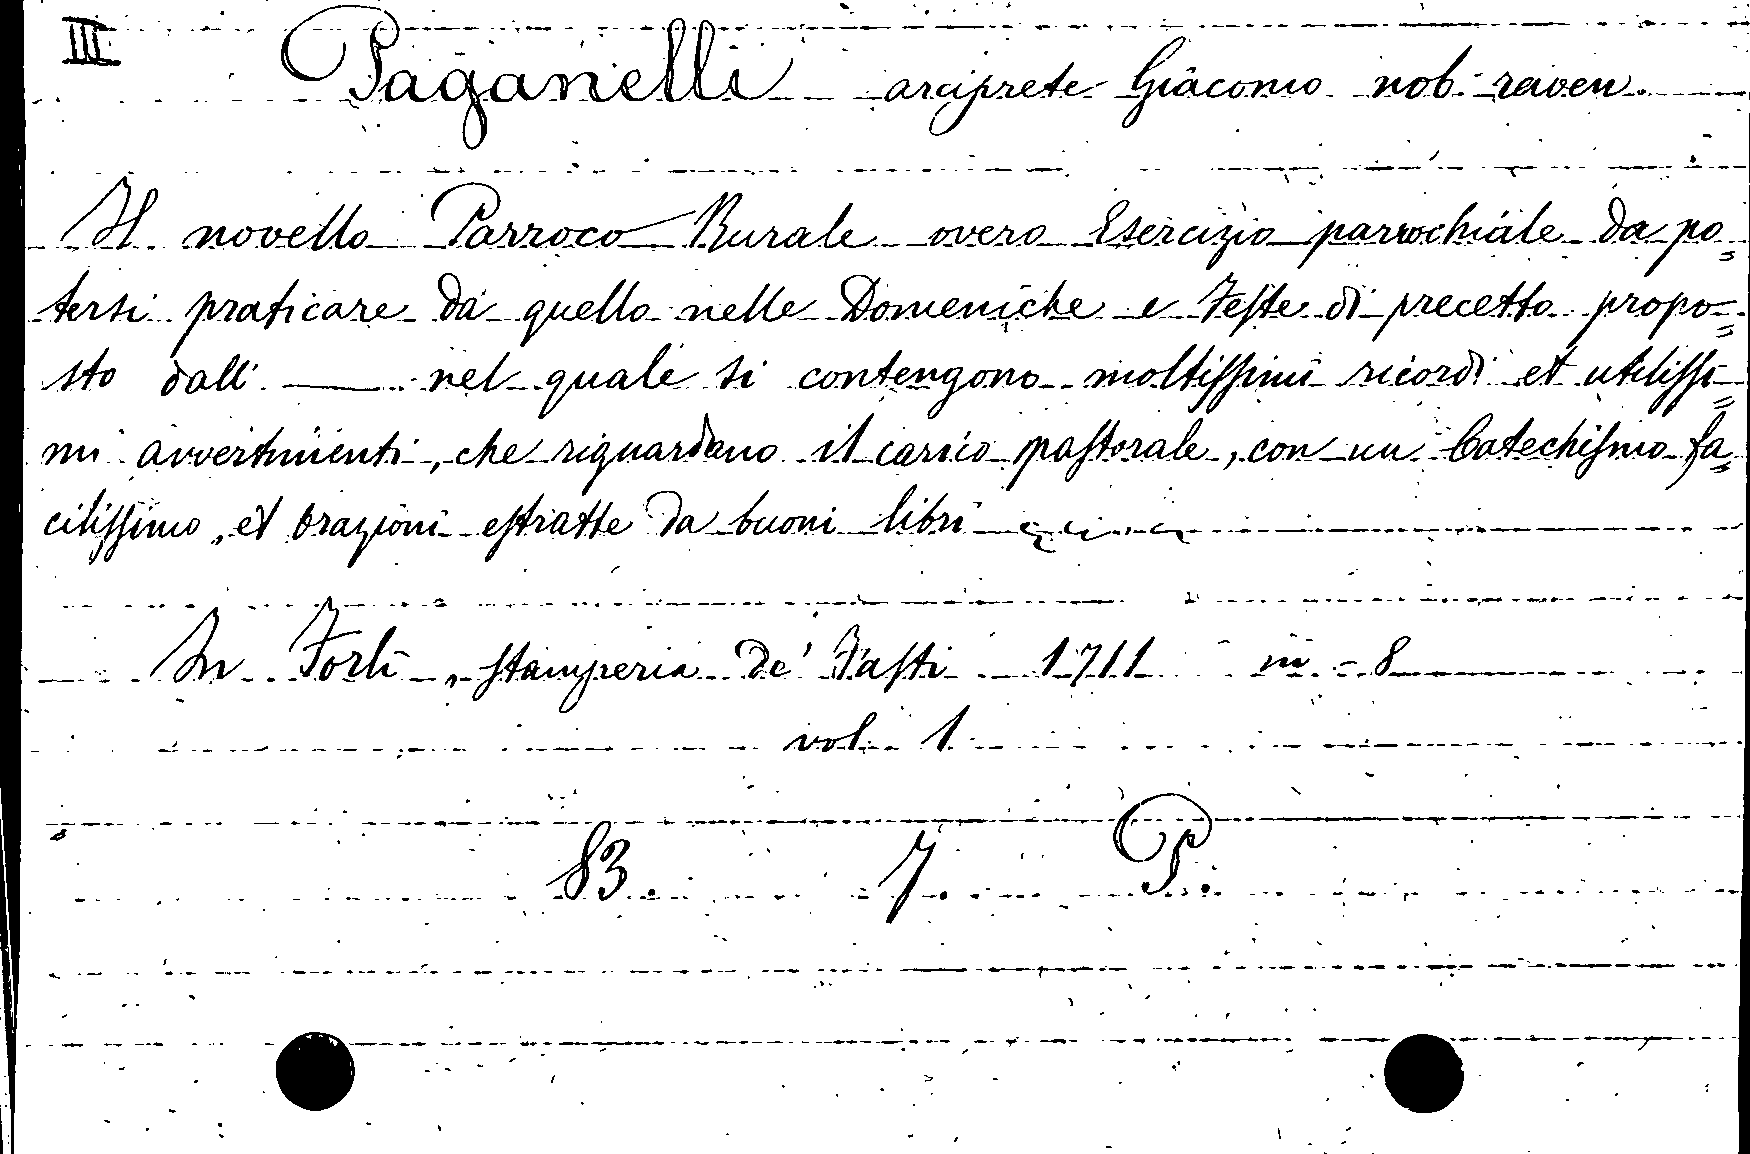 III
Paganelli arciprete Giacomo nob. raven.
Il novello Parroco Rurale overo Esercizio parrochiale da po=
tersi praticare da quello nelle Domeniche e Feste di precetto propo=
sto dall' —— nel quale si contengono moltissimi ricordi et utilissi=
mi avvertimenti, che riguardano il carico pastorale, con un Catechismo fa=
cilissimo, et orazioni estratte da buoni libri
In Forlì, stamperia de' Fasti 1711 in - 8
vol. 1
83. 7. P.